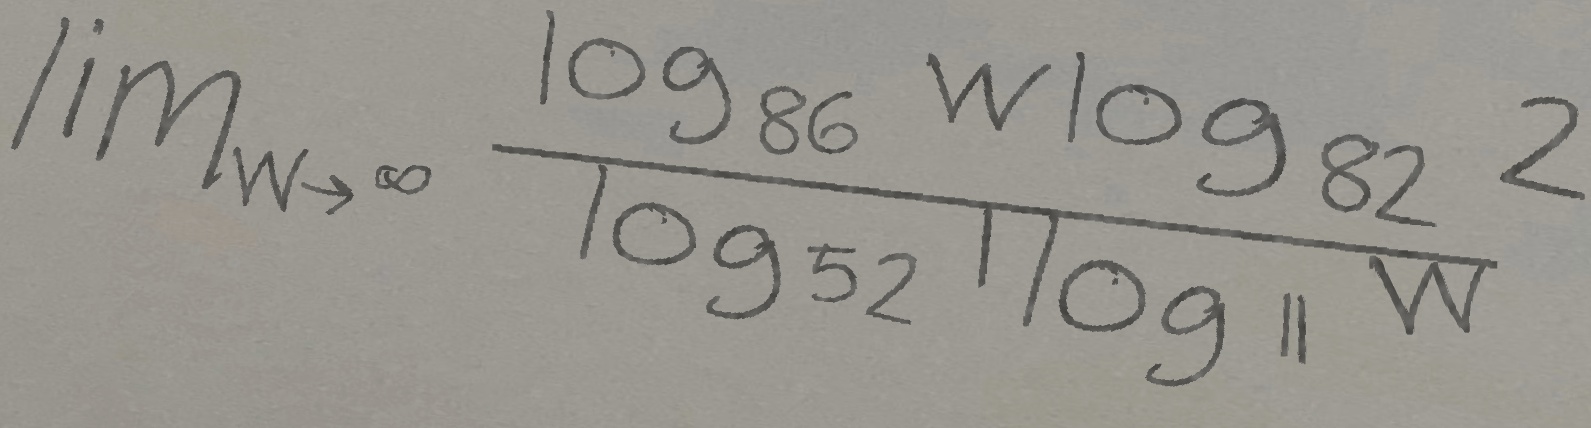 \lim_{w \to \infty} \frac{\log_{86} w \log_{82} 2}{\log_{52} 1 \log_{11} w}